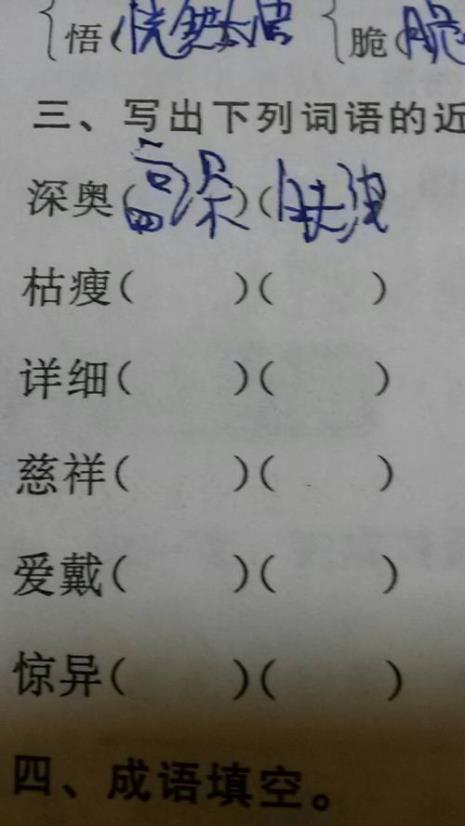 悟(恍然大悟 脆(脆
三、写出下列词语的近
深奥( )(肤浅
枯瘦( )( )
详细( )( )
慈祥( )( )
爱戴( )( )
惊异( )( )
四、成语填空。